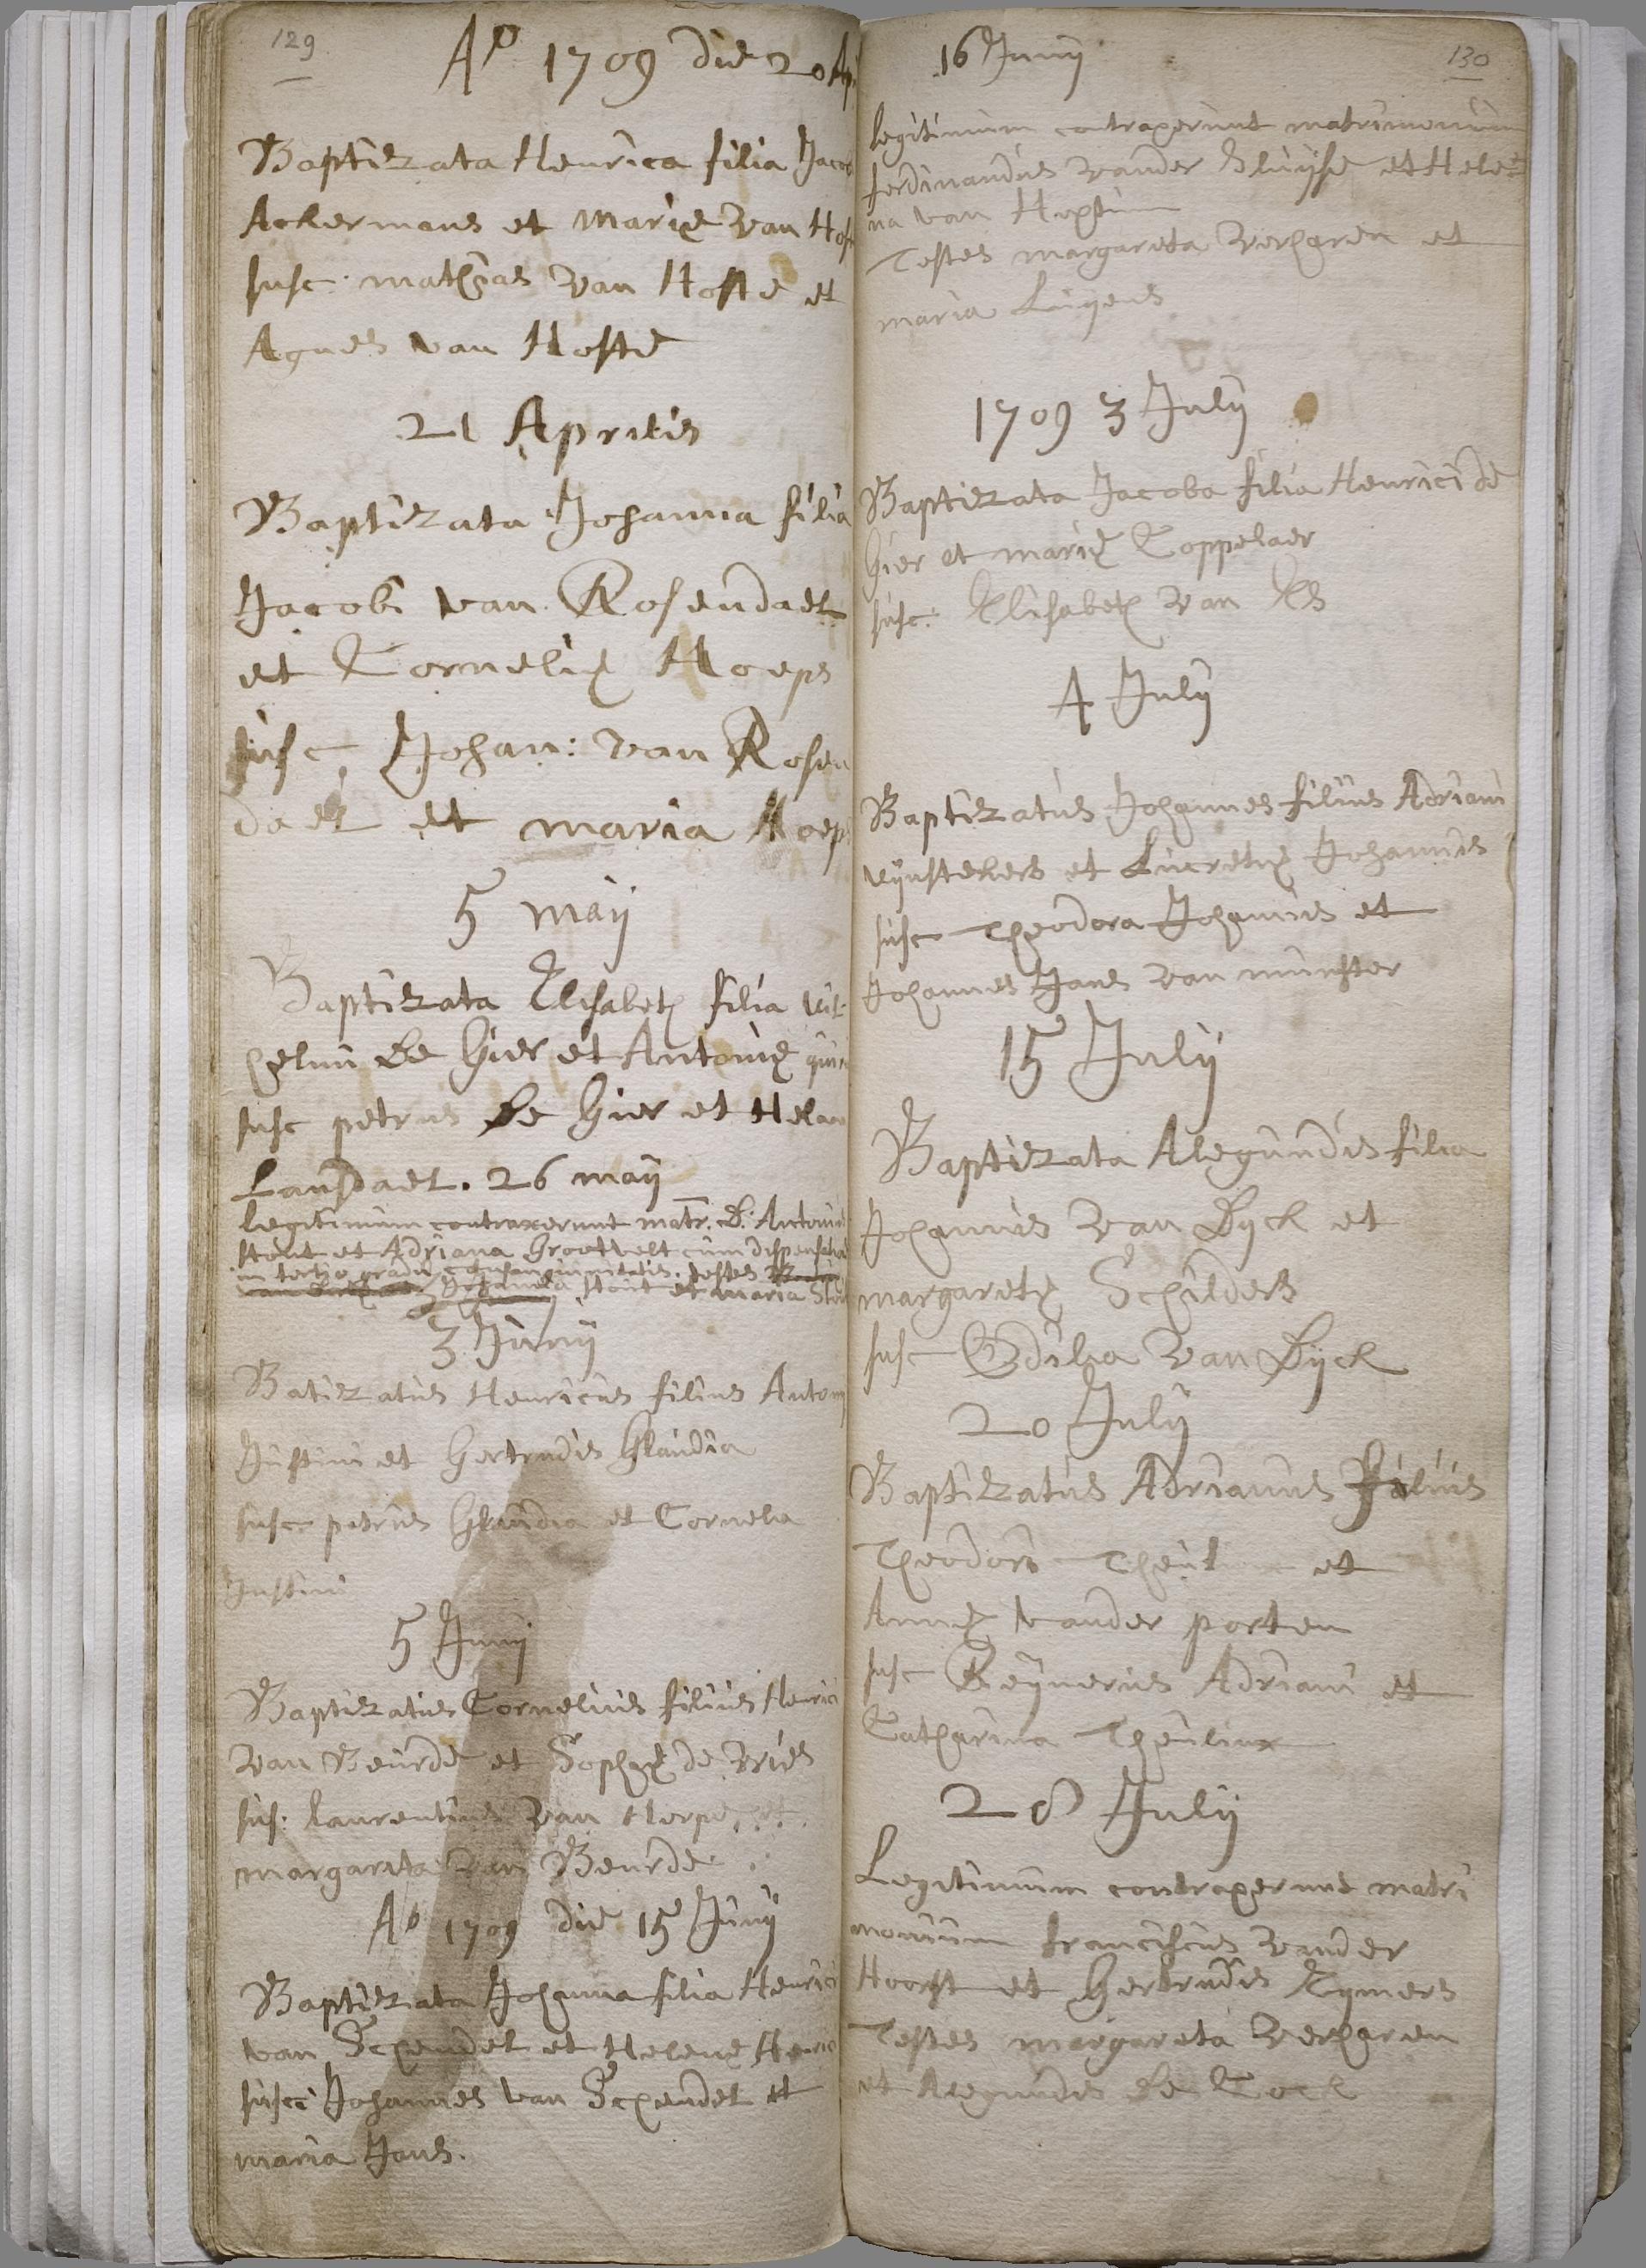 129
A° 1709 die 20 Ap
Baptizata Henrica filia Jacob
Ackermans et Mariæ van Host
susc: mathias van Hoste et
Agnes van Hoste
21 Aprilis
Baptizata Johanna filia
Jacobi van Rosendael
et Corneliæ Hoeps
susc Johan: van Rosen
dael et maria Hoeps
5 maij
Baptizata Elisabeth filia Wil
helmi de Gier et Antoniæ
susc petrus de Gier et Helena
Lansdael. 26 maij
legitimum contraxerunt matr. D. Antonius
stout et Adriana Grootvelt cum dispensatio
in tertio gradu consanguinitatis. testes
Johanna stout et maria
3 Junij
Batizatus Henricus filius Antonij
Justini et Gertrudis Glaudia
susce petrus Glaudia et Cornelia
Justini
5 Junij
Baptizatus Cornelius filius Henrici
van Beurde et Sophiæ de Vries
sus: laurentius van Herpe et
margarita van Beurde
A° 1709 die 15 Junij
Baptizata Johanna filia Henrici
van Schendel et Helenæ Henrici
susce Johannes van Schendel et
maria Jans.
16 Junij
130
legitimum contraxerunt matrimonium
ferdinandus vander Sluijse et Hele
na van
Testes margareta verharen et
maria Luijens
1709 3 Julij
Baptizata Jacoba filia Henrici de
Gier et mariæ Coppelaer
susc: Elisabeth van Es
4 Julij
Baptizatus Johannes filius Adriani
Wijnstekers et Lucretiæ Johannis
susc Theodora Johannis et
Johannes Jans van munster
15 Julij
Baptizata Alegundis filia
Johannis van Dijck et
margaretæ Schilders
susc Odilia van Dijck
20 Julij
Baptizatus Adrianus Filius
Theodori et
Annæ vander porten
susc Reijnerus Adriani et
Catharina Theulinx
28 Julij
Legitimum contraxerunt matri
monium franciscus vander
Hoorst et Gertrudis Rijmers
Testes margareta verharen
et Alegundis de Cock